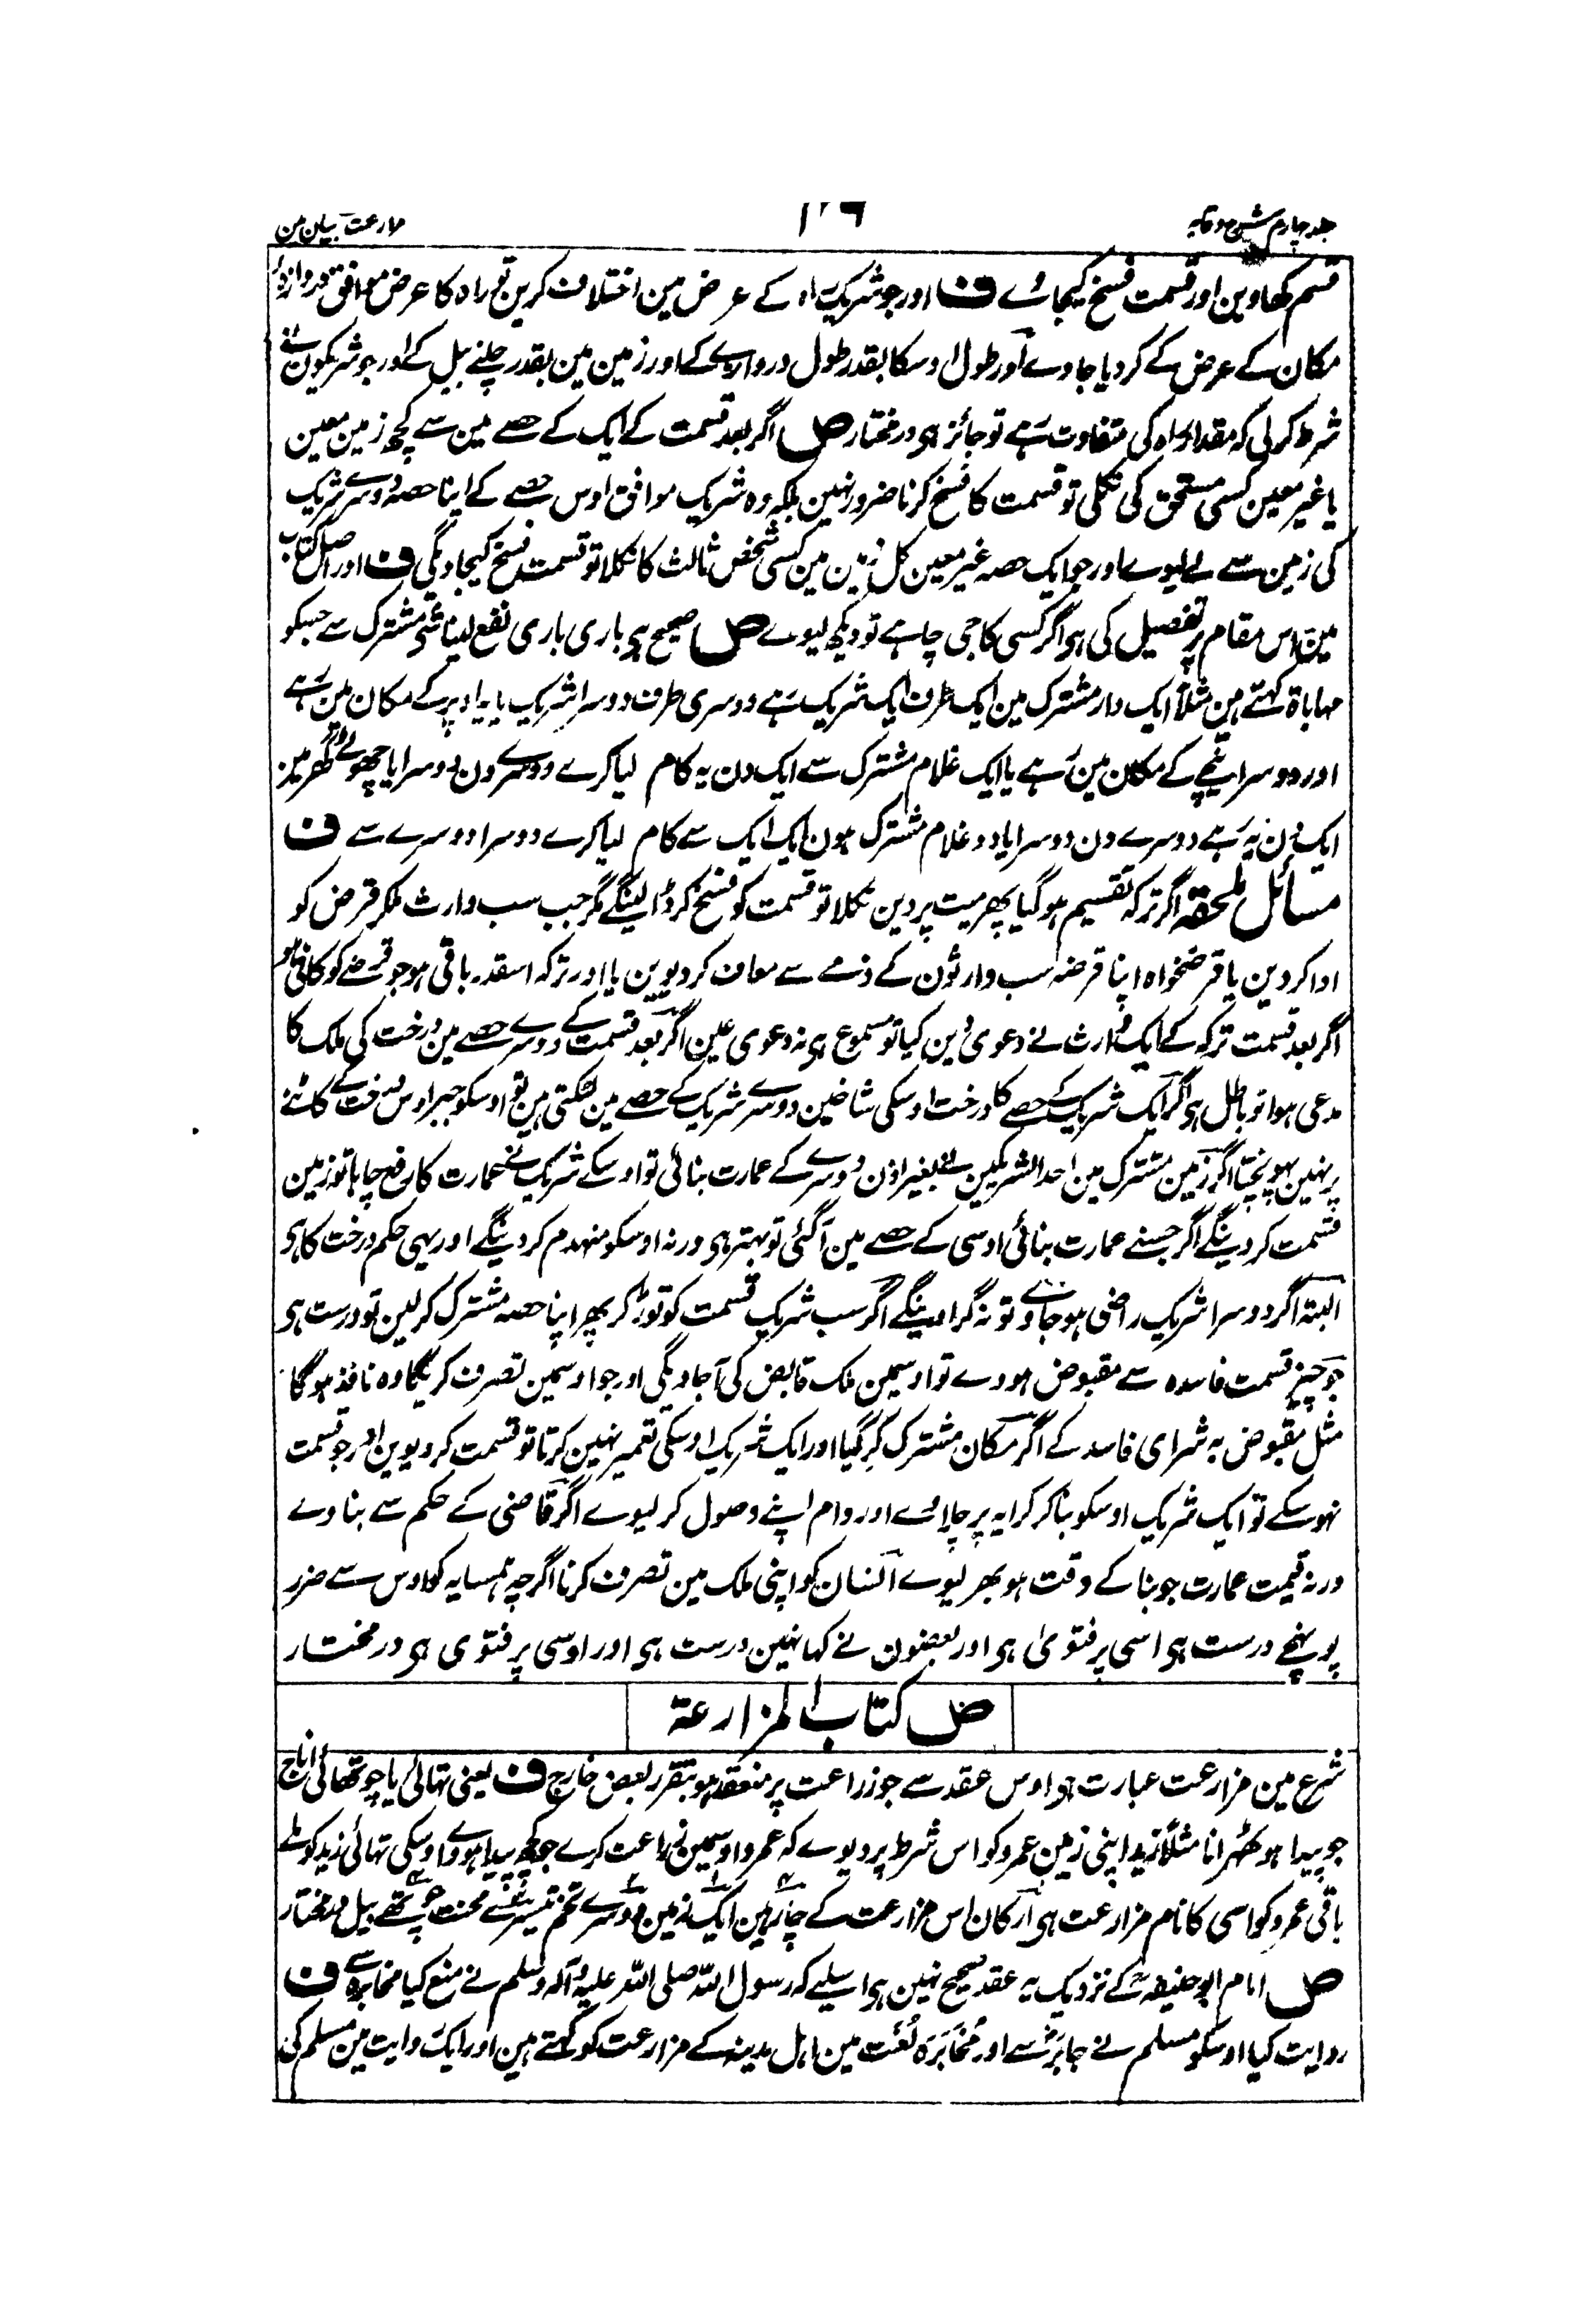 جلد چہارم شرح وقایہ
۱۲۶
مزارعت کے بیان مین
قسم کھاوین اور قسمت فسخ کیجاوے ف اور جو شریک راہ کے عرض مین اختلاف کرین تو راہ کا عرض موافق دروازۂ
مکان کے عرض کے کر دیا جاوے اور طول اوسکا بقدر طول دروازے کے اور زمین مین بقدر چلنے بیل کے اور جو شریکون نے
شرط کر لی کہ مقدار راہ کی متفاوت رہے تو جائز ہی در مختار ص اگر بعد قسمت کے ایک کے حصے مین سے کچھ زمین معین
یا غیر معین کسی مستحق کی نکلی تو قسمت کا فسخ کرنا ضرور نہین بلکہ وہ شریک موافق اوس حصے کے اپنا حصہ دوسرے شریک
کی زمین سے لے لیوے اور جو ایک حصہ غیر معین کل زمین مین کسی شخص ثالث کا نکلا تو قسمت فسخ کیجاویگی ف اور اصل کتاب
مین اس مقام پر تفصیل کی ہی اگر کسی کا جی چاہے تو دیکھ لیوے ص صحیح ہی باری باری نفع لینا شئ مشترک سے جسکو
مہایاۃ کہتے ہین مثلاً ایک دار مشترک مین ایک طرف ایک شریک رہے دوسری طرف دوسرا شریک یا یہ اوپر کے مکان مین رہے
اور دوسرا نیچے کے مکان مین رہے یا ایک غلام مشترک سے ایک دن یہ کام لیا کرے دوسرے دن دوسرا یا چھوٹے گھر مین
ایک دن یہ رہے دوسرے دن دوسرا یا دو غلام مشترک ہون ایک ایک سے کام لیا کرے دوسرا دوسرے سے ف
مسائل ملحقہ اگر ترکہ تقسیم ہو گیا پھر میت پر دین نکلا تو قسمت کو فسخ کر ڈالینگے مگر جب سب وارث ملکر قرض کو
ادا کر دین یا قرضخواہ اپنا قرضہ سب وارثون کے ذمے سے معاف کر دیوین یا اور ترکہ اسقدر باقی ہو جو قرضے کو کافی ہو
اگر بعد قسمت ترکہ کے ایک وارث نے دعوی دین کیا تو مسموع ہی نہ دعوی عین اگر بعد قسمت کے دوسرے حصے مین درخت کی ملک کا
مدعی ہوا تو باطل ہی اگر ایک شریک کے حصے کا درخت اوسکی شاخین دوسرے شریک کے حصے مین لٹکتی ہین تو اوسکو جبر اوس درخت کے کاٹنے
پر نہین پہونچتا اگر زمین مشترک مین احد الشریکین نے بغیر اذن دوسرے کے عمارت بنائی تو اوسکے شریک نے عمارت کا رفع چاہا تو زمین
قسمت کر دینگے اگر جسنے عمارت بنائی اوسی کے حصے مین آگئی تو بہتر ہی ورنہ اوسکو منہدم کر دینگے اور یہی حکم درخت کا ہی
البتہ اگر دوسرا شریک راضی ہو جاوے تو نہ گرا دینگے اگر سب شریک قسمت کو توڑ کر پھر اپنا حصہ مشترک کر لین تو درست ہی
جو چیز قسمت فاسدہ سے مقبوض ہووے تو اوسمین ملک قابض کی آجاویگی اور جو اوسمین تصرف کریگا وہ نافذ ہوگا
مثل مقبوض بہ شرای فاسد کے اگر مکان مشترک گر گیا اور ایک شریک اوسکی تعمیر نہین کرتا تو قسمت کر دیوین اور جو قسمت
نہو سکے تو ایک شریک اوسکو بنا کر کرایہ پر چلاوے اور دام اپنے وصول کر لیوے اگر قاضی کے حکم سے بناوے
ورنہ قیمت عمارت جو بنا کے وقت ہو بھر لیوے انسان کو اپنی ملک مین تصرف کرنا اگرچہ ہمسایہ کو اوس سے ضرر
پہونچے درست ہی اسی پر فتوی ہی اور بعضون نے کہا نہین درست ہی اور اوسی پر فتوی ہی در مختار
ص کتاب المزارعۃ
شرع مین مزارعت عبارت ہی اوس عقد سے جو زراعت پر منعقد ہو بتقرر بعض خارج ف یعنی تہائی یا چوتھائی اناج
جو پیدا ہو ٹھہرانا مثلاً زید اپنی زمین عمرو کو اس شرط پر دیوے کہ عمرو اوسمین زراعت کرے جو کچھ پیدا ہووے اوسکی تہائی زید کو ملے
باقی عمرو کو اسی کا نام مزارعت ہی ارکان اس مزارعت کے چار ہین ایک زمین دوسرے تخم تیسرے محنت چوتھے بیل در مختار
ص امام ابو حنیفہؒ کے نزدیک یہ عقد صحیح نہین ہی اسلیے کہ رسول اللہ صلی اللہ علیہ وآلہ وسلم نے منع کیا مخابرہ سے ف
روایت کیا اوسکو مسلم نے جابرؓ سے اور مُخابَرَہ لُغت مین اہل مدینہ کے مزارعت کو کہتے ہین اور ایک روایت مین مسلم کی